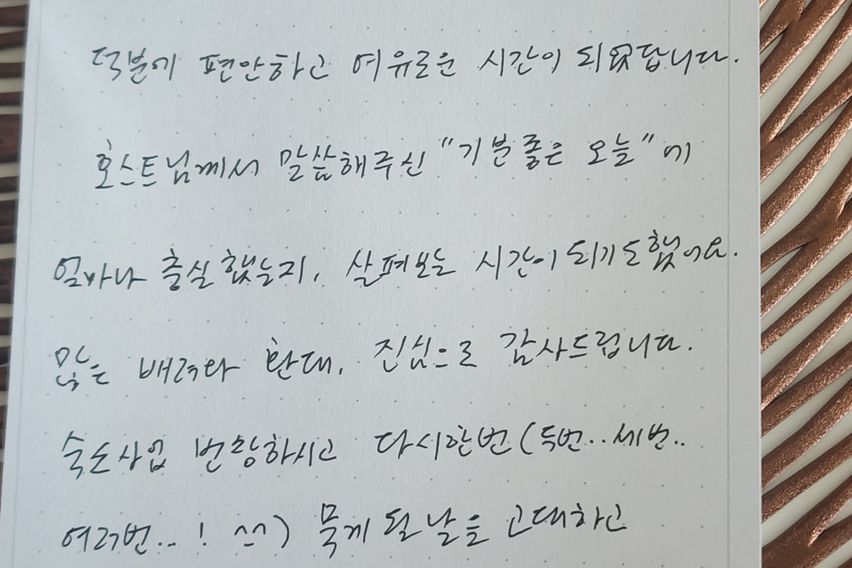 덕분에 편안하고 여유로운 시간이 되었답니다.
호스트님께서 말씀해주신 "기분좋은 오늘"에
얼마나 충실했는지, 살펴보는 시간이 되기도했어요.
많은 배려와 환대, 진심으로 감사드립니다.
숙소사업 번창하시고 다시한번(두번..세번..
여러번..! ^^) 묵게 될 날을 고대하고